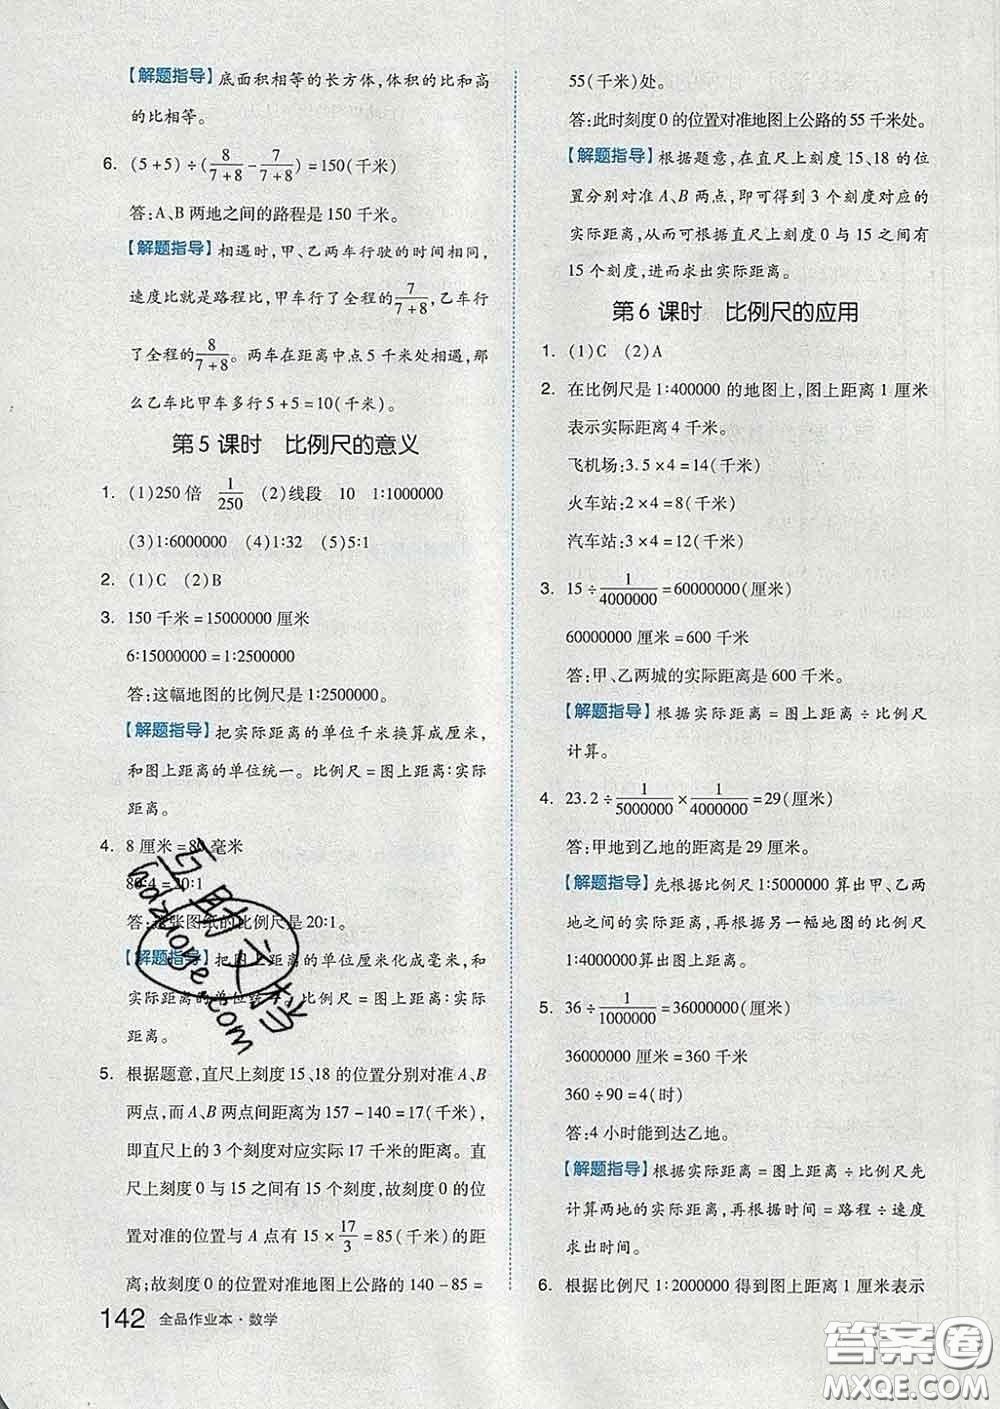 【解题指导】底面积相等的长方体,体积的比和高
的比相等。
6. (5+5)÷(8/(7+8)-7/(7+8))=150(千米)
答:A、B两地之间的路程是150千米。
【解题指导】相遇时,甲、乙两车行驶的时间相同,
速度比就是路程比,甲车行了全程的7/(7+8),乙车行
了全程的8/(7+8)。两车在距离中点5千米处相遇,那
么乙车比甲车多行5+5=10(千米)。
第5课时 比例尺的意义
1. (1)250倍 1/250 (2)线段 10 1:1000000
(3)1:6000000 (4)1:32 (5)5:1
2. (1)C (2)B
3. 150千米=15000000厘米
6:15000000=1:2500000
答:这幅地图的比例尺是1:2500000。
【解题指导】把实际距离的单位千米换算成厘米,
和图上距离的单位统一。比例尺=图上距离:实际
距离。
4. 8厘米=80毫米
80:4=20:1
答:这张图纸的比例尺是20:1。
【解题指导】把图上距离的单位厘米化成毫米,和
实际距离的单位统一。比例尺=图上距离:实际
距离。
5. 根据题意,直尺上刻度15、18的位置分别对准A、B
两点,而A、B两点间距离为157-140=17(千米),
即直尺上的3个刻度对应实际17千米的距离。直
尺上刻度0与15之间有15个刻度,故刻度0的位
置对准的位置与A点有15×17/3=85(千米)的距
离;故刻度0的位置对准地图上公路的140-85=
142 全品作业本·数学
55(千米)处。
答:此时刻度0的位置对准地图上公路的55千米处。
【解题指导】根据题意,在直尺上刻度15、18的位
置分别对准A、B两点,即可得到3个刻度对应的
实际距离,从而可根据直尺上刻度0与15之间有
15个刻度,进而求出实际距离。
第6课时 比例尺的应用
1. (1)C (2)A
2. 在比例尺是1:400000的地图上,图上距离1厘米
表示实际距离4千米。
飞机场:3.5×4=14(千米)
火车站:2×4=8(千米)
汽车站:3×4=12(千米)
3. 15÷1/4000000=60000000(厘米)
60000000厘米=600千米
答:甲、乙两城的实际距离是600千米。
【解题指导】根据实际距离=图上距离÷比例尺
计算。
4. 23.2÷1/5000000×1/4000000=29(厘米)
答:甲地到乙地的距离是29厘米。
【解题指导】先根据比例尺1:5000000算出甲、乙两
地之间的实际距离,再根据另一幅地图的比例尺
1:4000000算出图上距离。
5. 36÷1/1000000=36000000(厘米)
36000000厘米=360千米
360÷90=4(时)
答:4小时能到达乙地。
【解题指导】根据实际距离=图上距离÷比例尺先
计算两地的实际距离,再根据时间=路程÷速度
求出时间。
6. 根据比例尺1:2000000得到图上距离1厘米表示
答案圈
MXQE.COM
hdzuoye.com